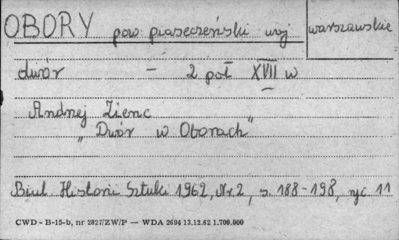 OBORY pow piaseczeński woj warszawskie
dwór - 2 poł XVII w
Andrzej Zienc
"Dwór w Oborach"
Biul. Historii Sztuki 1962, Nr. 2, s. 188-198, ryc 11
CWD - B-15-b, nr 2827/ZW/P — WDA 2694 13.12.62 1.700.000